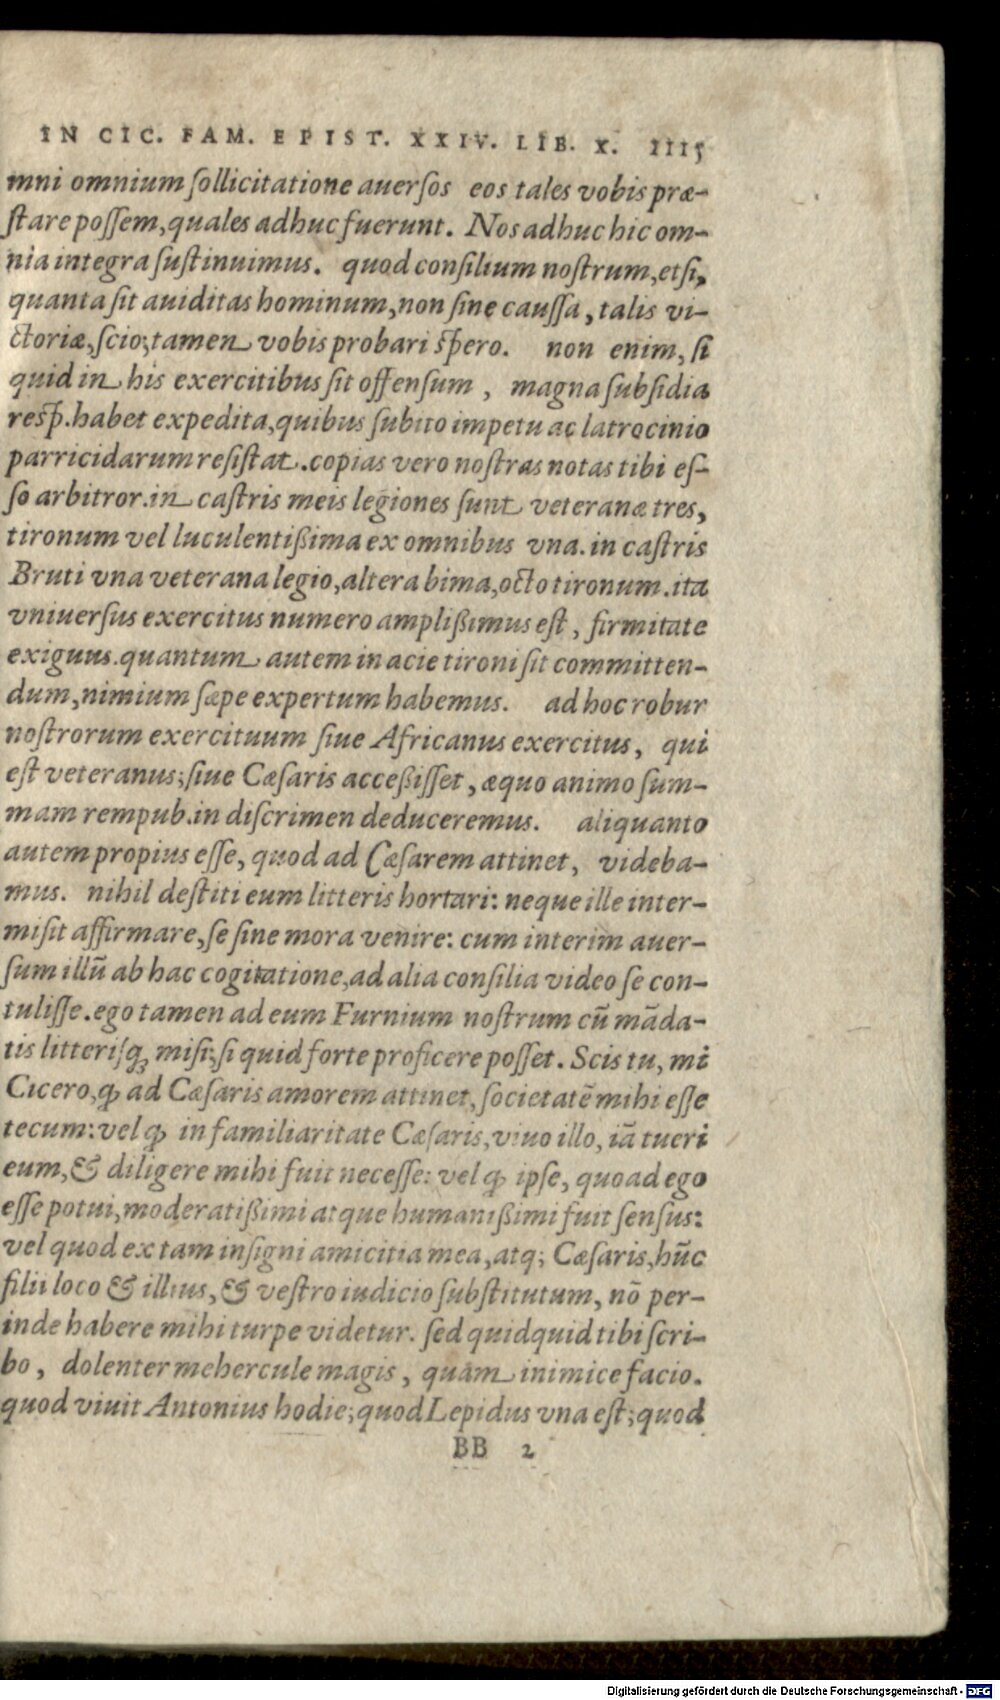 IN CIC. FAM. EPIST. XXIV. LIB. X. IIII5
mni omnium ſollicitatione auerſos eos tales vobis præ-
ſtare poſſem, quales adhuc fuerunt. Nos adhuc hic om-
nia integra ſuſtinuimus. quod conſilium noſtrum, etſi,
quanta ſit auiditas hominum, non ſine cauſſa, talis vi-
ctoriæ, ſcio; tamen vobis probari ſpero. non enim, ſi
quid in his exercitibus ſit offenſum, magna ſubſidia
reſp. habet expedita, quibus ſubito impetu ac latrocinio
parricidarum reſiſtat. copias vero noſtras notas tibi eſ-
ſe arbitror. in caſtris meis legiones ſunt veteranæ tres,
tironum vel luculentißima ex omnibus vna. in caſtris
Bruti vna veterana legio, altera bima, octo tironum. ita
vniuerſus exercitus numero amplißimus eſt, firmitate
exiguus. quantum autem in acie tironi ſit committen-
dum, nimium ſæpe expertum habemus. ad hoc robur
noſtrorum exercituum ſiue Africanus exercitus, qui
eſt veteranus; ſiue Cæſaris acceßiſſet, æquo animo ſum-
mam rempub. in diſcrimen deduceremus. aliquanto
autem propius eſſe, quod ad Cæſarem attinet, videba-
mus. nihil deſtiti eum litteris hortari: neque ille inter-
miſit affirmare, ſe ſine mora venire: cum interim auer-
ſum illū ab hac cogitatione, ad alia conſilia video ſe con-
tuliſſe. ego tamen ad eum Furnium noſtrum cū māda-
tis litteriſq; miſi; ſi quid forte proficere poſſet. Scis tu, mi
Cicero, ꝙ ad Cæſaris amorem attinet, ſocietatē mihi eſſe
tecum: vel ꝙ in familiaritate Cæſaris, viuo illo, iā tueri
eum, & diligere mihi fuit neceſſe: vel ꝙ ipſe, quoad ego
eſſe potui, moderatißimi atque humanißimi fuit ſenſus:
vel quod ex tam inſigni amicitia mea, atq; Cæſaris, hūc
filii loco & illius, & veſtro iudicio ſubſtitutum, nō per-
inde habere mihi turpe videtur. ſed quidquid tibi ſcri-
bo, dolenter mehercule magis, quàm inimice facio.
quod viuit Antonius hodie; quod Lepidus vna eſt; quod
BB 2
Digitalisierung gefördert durch die Deutsche Forschungsgemeinschaft - DFG